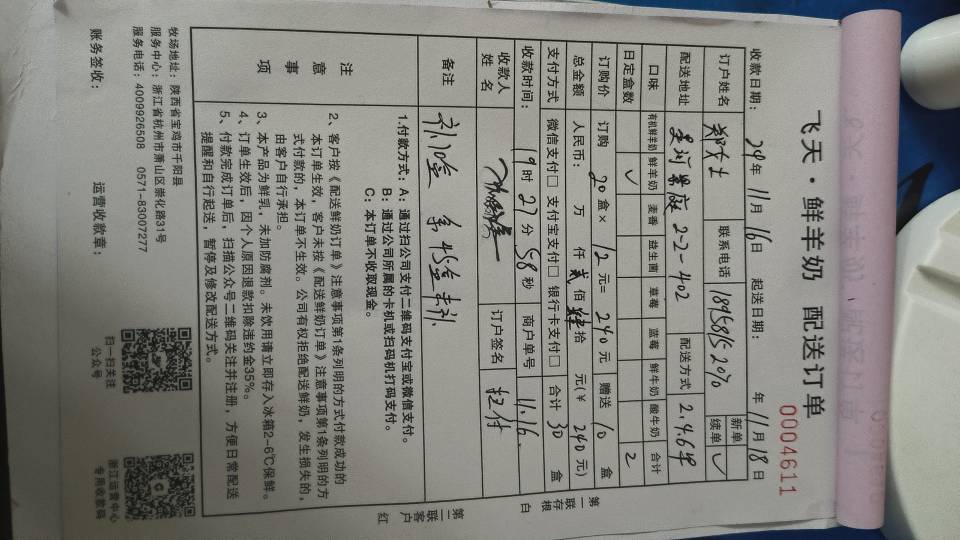 飞天·鲜羊奶 配送订单
0004611
收款日期: 24年 11月 16日 起送日期: 年 11月 18日
订户姓名 郑女士 联系电话 新单 续单 ✓
配送地址 2-2-402 配送方式 2.4.6早
口味 有机鲜羊奶 鲜羊奶 麦香 益生菌 草莓 蓝莓 鲜牛奶 酸牛奶 合计
日定盒数 ✓ 2
订购价 订购 20盒× 12元= 240元 赠送 10 盒
总金额 人民币: 万 仟 贰佰 肆拾 元(¥ 240元)
支付方式 微信支付□ 支付宝支付□ 银行卡支付□ 合计 30 盒
收款时间: 19时 27分 58秒 商户单号 11.16.
收款人姓名 订户签名
备注
注意事项
1.付款方式: A: 通过扫公司支付二维码支付宝或微信支付。
B: 通过公司所属的卡机或扫码机打码支付。
C: 本订单不收取现金。
2、客户按《配送鲜奶订单》注意事项第1条列明的方式付款成功的
本订单生效,客户未按《配送鲜奶订单》注意事项第1条列明的方
式付款的,本订单不生效。公司有权拒绝配送鲜奶,发生损失的,
由客户自行承担。
3、本产品为鲜乳,未加防腐剂。未饮用请立即存入冰箱2-6℃保鲜。
4、订单生效后,因个人原因退款扣除违约金35%。
5、付款完成订单后,扫描公众号二维码关注并注册,方便日常配送
提醒和自行起送,暂停及修改配送方式。
第一联存根 白
第二联客户 红
牧场地址: 陕西省宝鸡市千阳县
服务中心: 浙江省杭州市萧山区崇化路31号
服务电话: 4009926508 0571-83007277
扫一扫关注
公众号
浙江运营中心
专用收款码
账务签收: 运营收款章: